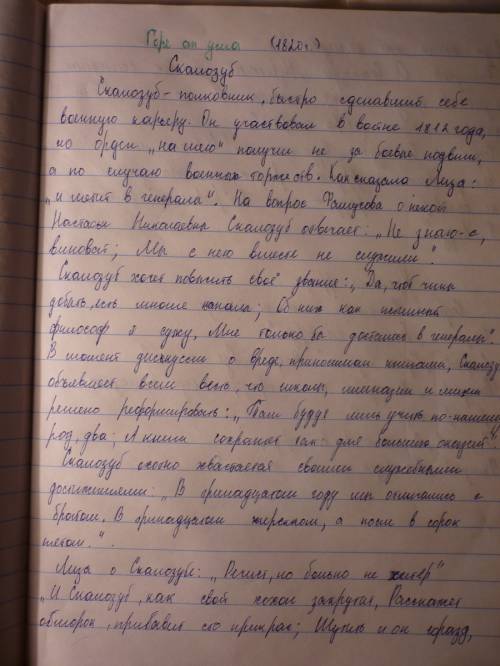 Горе от ума (1820г.)
Скалозуб
Скалозуб - полковник, быстро сделавший себе
военную карьеру. Он участвовал в войне 1812 года,
но орден „на шею" получил не за боевые подвиги,
а по случаю военных торжеств. Как сказала Лиза:
„и метит в генералы". На вопрос Фамусова о некой
Настасье Николаевне Скалозуб отвечает: „Не знаю-с,
виноват; Мы с нею вместе не служили".
Скалозуб хочет повысить своё звание: „Да, чтоб чины
добыть, есть многие каналы; Об них как истинный
философ я сужу, Мне только бы досталось в генералы".
В момент дискуссии о вреде, приносимом книгами, Скалозу
объявляет всем весть, что школы, гимназии и лицеи
решено реформировать: „Там будут лишь учить по-нашему
раз, два; А книги сохранят так: для больших оказий".
Скалозуб охотно хвастается своими служебными
достижениями: „В тринадцатом году мы отличались с
братом. В тринадцатом егерском, а после в сорок
пятом."
Лиза о Скалозубе: „Речист, но больно не хитер"
„И Скалозуб, как свой хохол закрутит, Расскажет
обморок, прибавит сто прикрас; Шутить и он горазд,